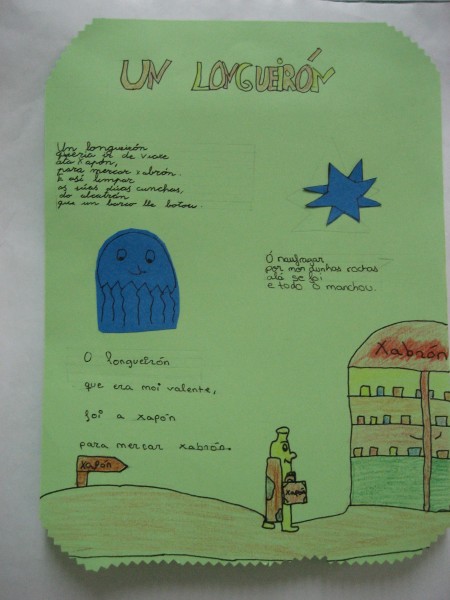 UN LONGUEIRÓN
Un longueirón
quería ir de viaxe
ata Xapón,
para mercar xabrón.
E así limpar
as súas dúas cunchas,
do alcatrán
que un barco lle botou.
Ó naufragar
por mon dunhas rochas
alá se foi
e todo o manchou.
O longueirón
que era moi valente,
foi a xapón
para mercar xabrón.
Xabrón
xapón
xapón